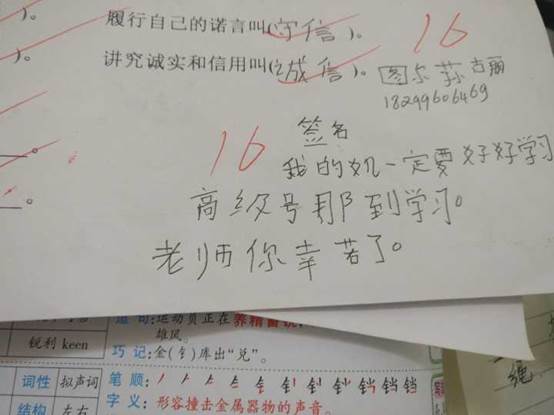 )。
履行自己的诺言叫(守信)。
16
)。
讲究诚实和信用叫(诚信)。
图尔荪古丽
18299606469
16
签名
我的奴一定要好好学习
高级号那到学习。
老师你幸苦了。
造句:运动员正在养精蓄锐
雄风。
锐利 keen
巧记:金(钅)库出“兑”。
词性 拟声词
笔顺:
铛 铛
字义:形容撞击金属器物的声音。
结构 左右